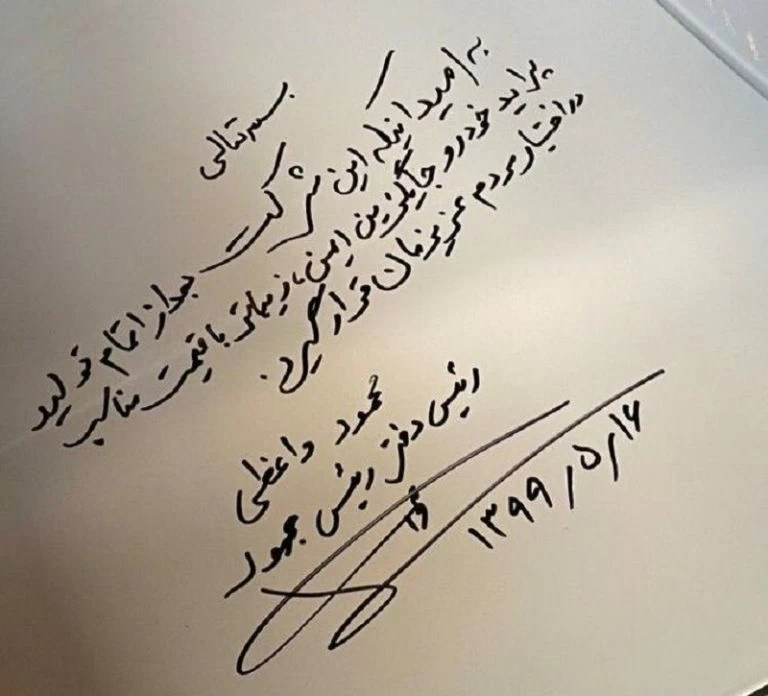 بسمه تعالی
به امید اینکه این شرکت بعد از اتمام تولید
پراید خودرو جایگزین ایمن، زیباتر با قیمت مناسب
در اختیار مردم عزیزمان قرار گیرد.
محمود واعظی
رئیس دفتر رئیس جمهور
۱۳۹۹/۵/۱۶